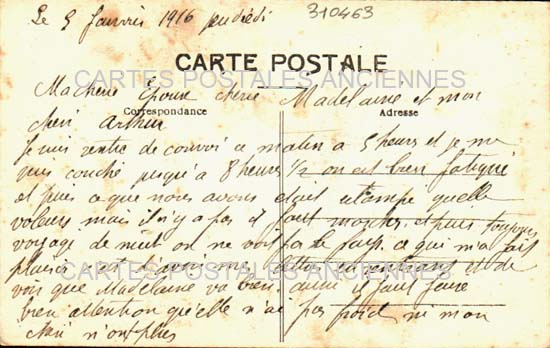 Le 5 Janvier 1916 vendredi
310463
CARTE POSTALE
CARTES POSTALES ANCIENNES
Ma chere Epouse cherie Madelaine et mon
Correspondance
Adresse
cheri Arthur
Je suis rentre de convoi ce matin a 5 heurs et je me
suis couché jusqu'a 8 heures 1/2 on est bien fatigué
et puis ce que nous avons étampe quelle
voleurs mais il n'y a pas il faut marcher et puis toujours
voyage de nuit on ne voit pas le pays. ce qui m'a fait
plaisir de lettre en rentrant et de
CARTES POSTALES ANCIENNES
voir que Madelaine va bien aussi il faut faire
bien attention qu'elle n'ai pas froid ni mon
cheri non plus